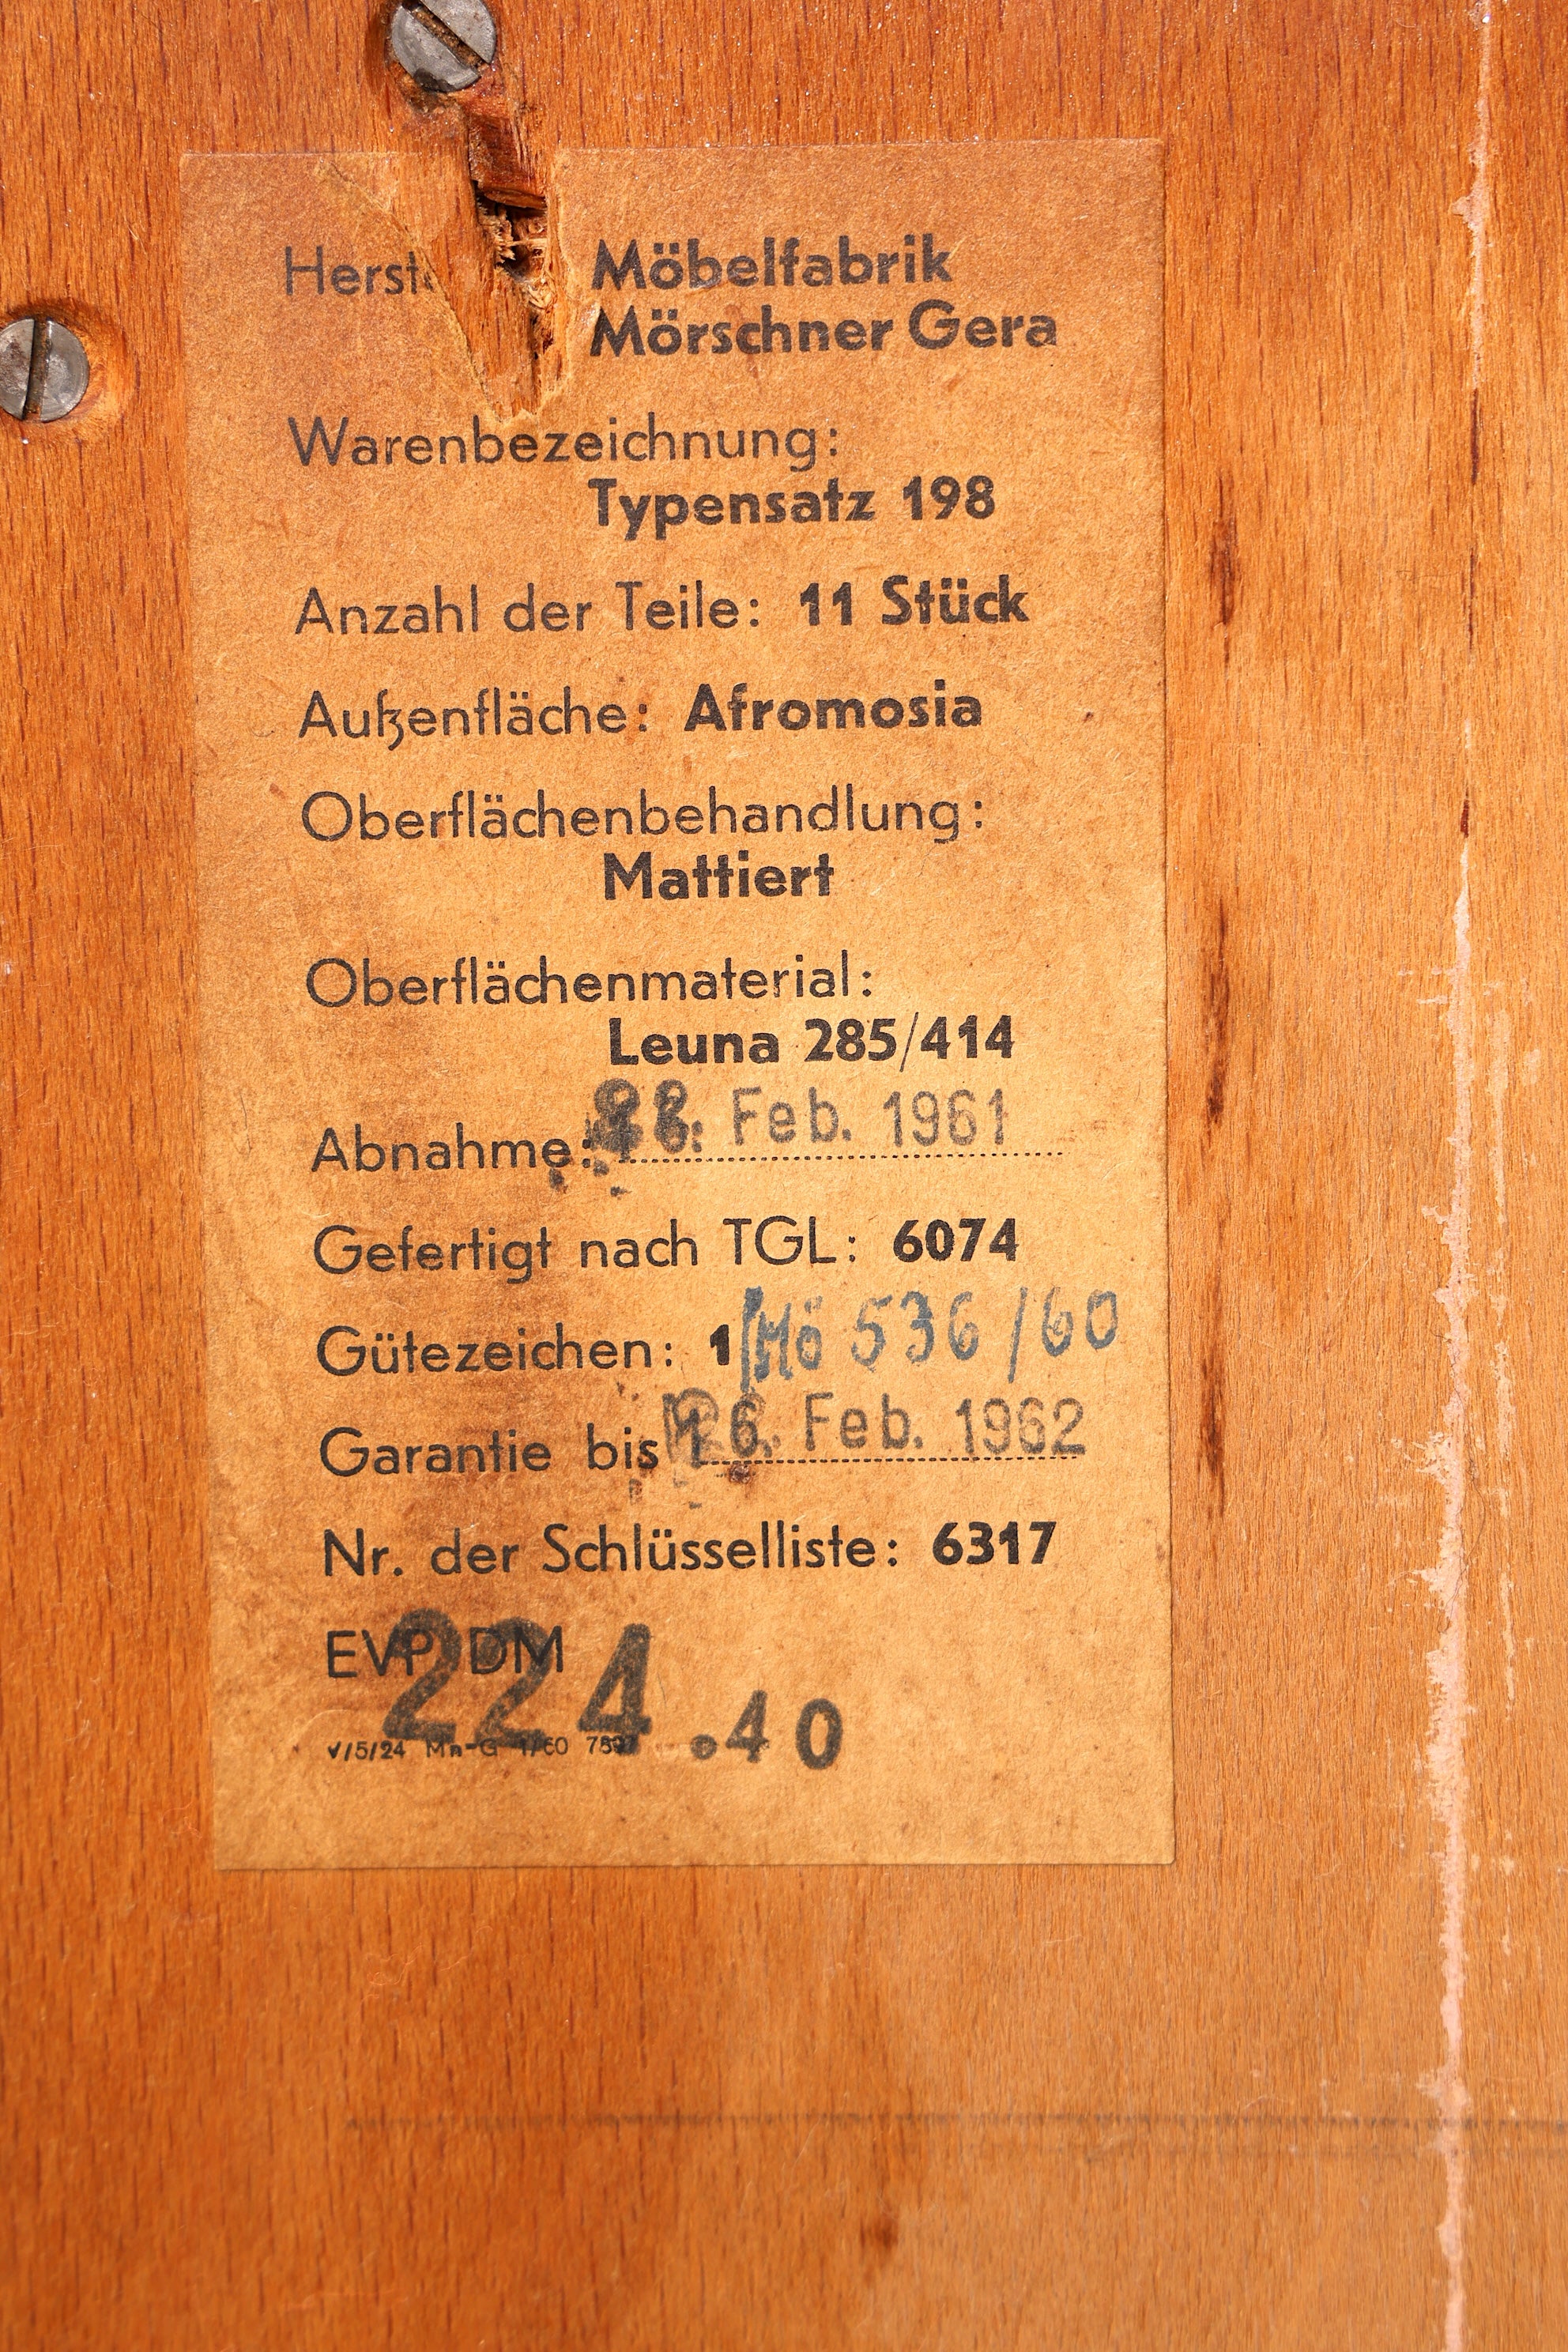 Herst
Möbelfabrik
Mörschner Gera
Warenbezeichnung:
Typensatz 198
Anzahl der Teile: 11 Stück
Außenfläche: Afromosia
Oberflächenbehandlung:
Mattiert
Oberflächenmaterial:
Leuna 285/414
Abnahme: Feb. 1961
Gefertigt nach TGL: 6074
Gütezeichen: 1/Mö 536/60
Garantie bis Feb. 1962
Nr. der Schlüsselliste: 6317
EVP DM
224.40
V/5/24 Mn-G 1/60